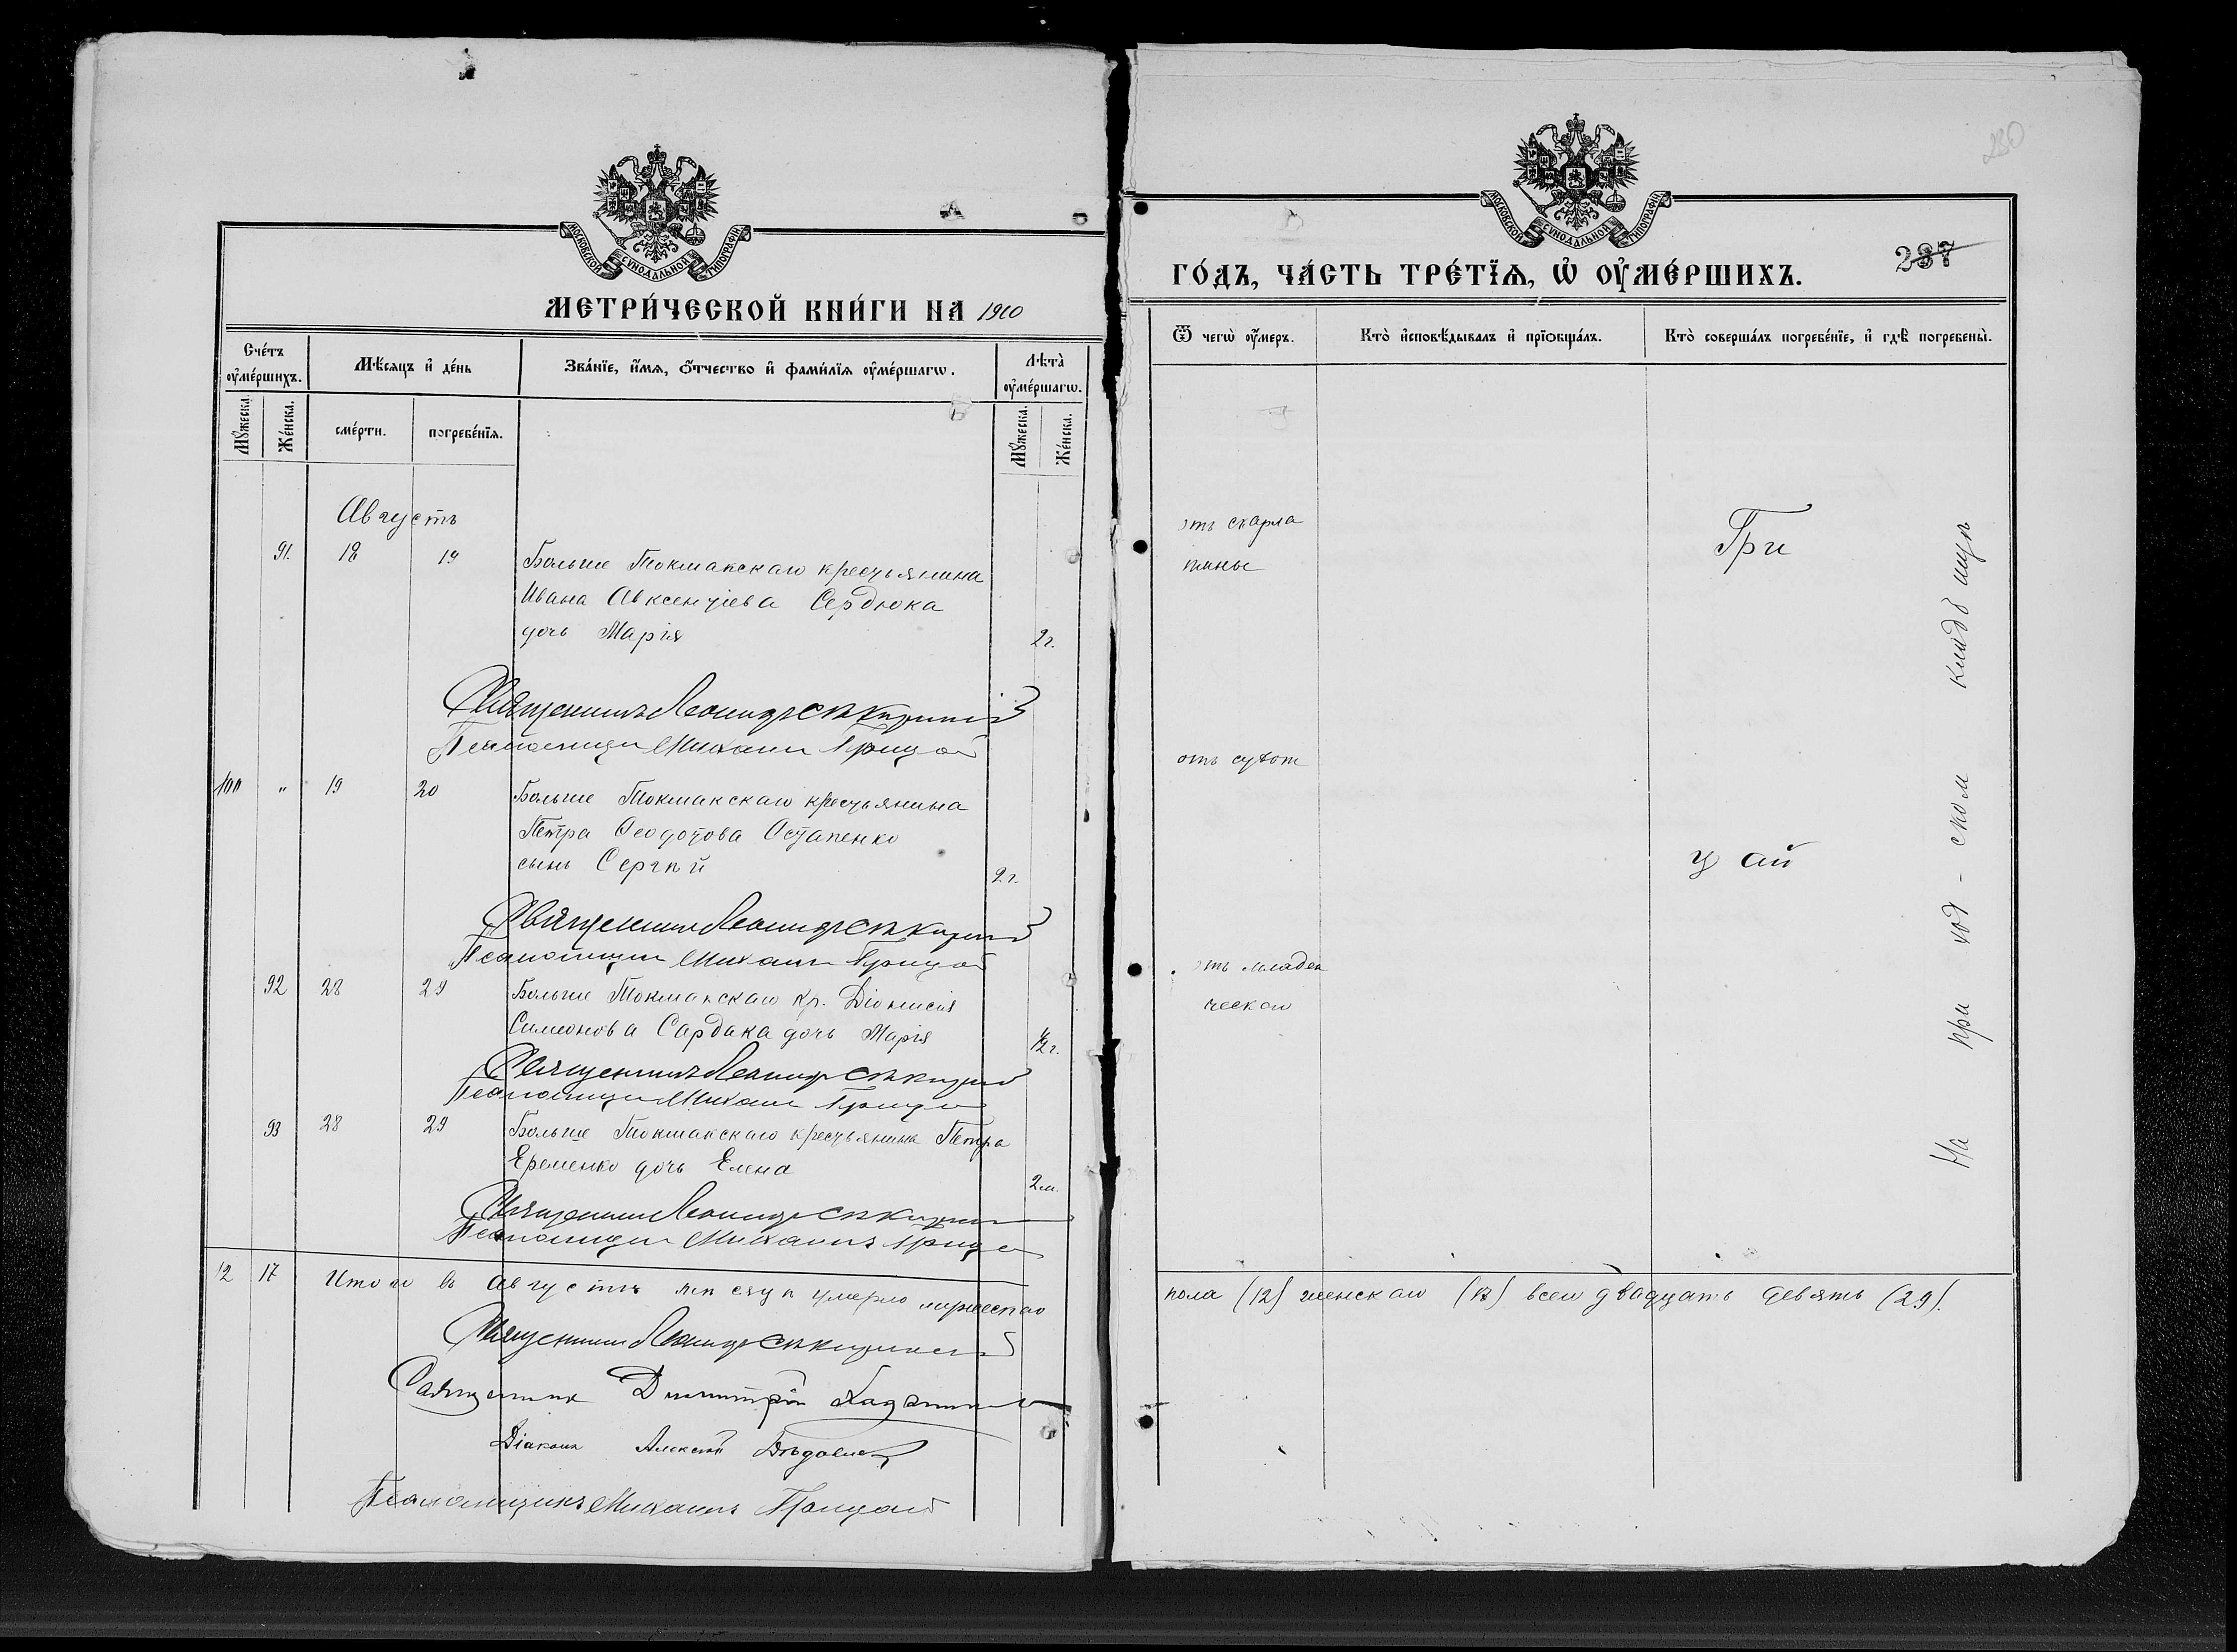 МОСКОВСКОЙ СУНОДАЛЬНОЙ ТИПОГРАФІИ
МЕТРИ́ЧЕСКОЙ КНИ́ГИ НА 1910
Сче́тъ ᲂу҆ме́ршихъ.
Мѣ́сяцъ и҆ де́нь
Зва́нїе, и҆́мѧ, ѻ҆́тчество и҆ фами́лїѧ ᲂу҆ме́ршагѡ.
Лѣта̀ ᲂу҆ме́ршагѡ.
Мꙋ́жеска.
Же́нска.
сме́рти.
погребе́нїѧ.
Мꙋ́жеска.
Же́нска.
Августъ
91. 18 19 Больше Токмакскаго крестьянина
Ивана Авксентіева Сердюка
дочь Марія 2 г.
Священникъ Леонидъ
Псаломщикъ Михаилъ Грицай
100 " 19 20 Больше Токмакскаго крестьянина
Петра Ѳеодотова Остапенко
сынъ Сергѣй 2 г.
Священникъ Леонидъ
Псаломщикъ Михаилъ Грицай
92 28 29 Больше Токмакскаго кр. Діонисія
Симеонова Сардака дочь Марія 1/2 г.
Священникъ Леонидъ
Псаломщикъ Михаилъ Грицай
93 28 29 Больше Токмакскаго крестьянина Петра
Еременко дочь Елена 2 м.
Священникъ Леонидъ
Псаломщикъ Михаилъ Грицай
12 17 Итого въ Августѣ мѣсяцѣ умерло мужескаго
Священникъ Леонидъ
Священникъ Димитрій
Діаконъ Алексѣй
Псаломщикъ Михаилъ Грицай
230
МОСКОВСКОЙ СУНОДАЛЬНОЙ ТИПОГРАФІИ
237
ГО́ДЪ, ЧА́СТЬ ТРЕ́ТЇѦ, Ѡ҆ ОУ҆МЕ́РШИХЪ.
Ѿ чегѡ̀ ᲂу҆́меръ.
Кто̀ и҆сповѣ́дывалъ и҆ прїѡбща́лъ.
Кто̀ соверша́лъ погребе́нїе, и҆ гдѣ̀ погребены̀.
отъ скарла
тины
Гри
отъ сухот
цай
отъ младен
ческаго
На приход-ском кладбищѣ
пола (12) женскаго (17) всего двадцать девять (29).